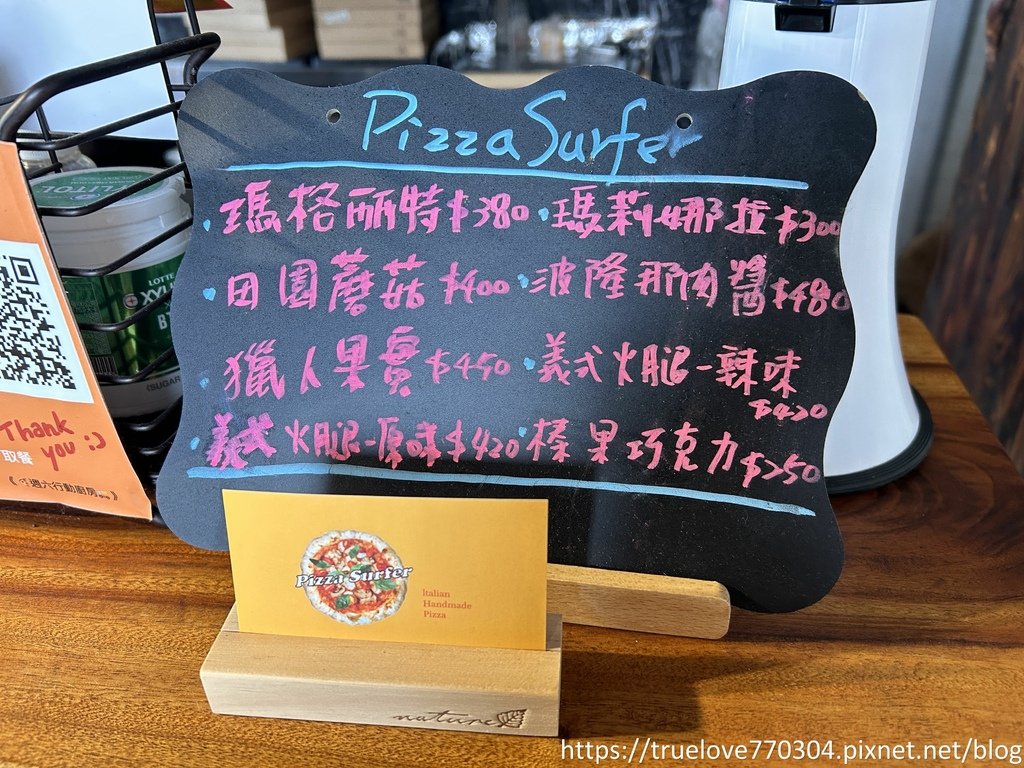 Pizza Surfer
瑪格丽特$380 · 瑪莉娜拉$300
田園蘑菇$400 · 波隆那肉醬$480
獵人果實$450 · 義式火腿-辣味
$420
義式火腿-原味$420 榛果巧克力$250
Pizza Surfer
Italian
Handmade
Pizza
nature
Thank
you :)
取餐
週六行動廚房
LOTTE
XYLITOL
https://truelove770304.pixnet.net/blog